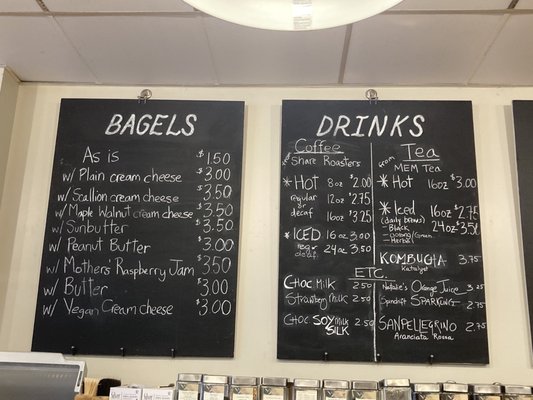 BAGELS
As is $1.50
w/ Plain cream cheese $3.00
w/ Scallion cream cheese $3.50
w/ Maple Walnut cream cheese $3.50
w/ Sunbutter $3.50
w/ Peanut Butter $3.00
w/ Mothers' Raspberry Jam $3.50
w/ Butter $3.00
w/ Vegan Cream cheese $3.00
DRINKS
Coffee
from Share Roasters
* Hot 8oz $2.00
regular or decaf 12oz $2.75
16oz $3.25
* ICED 16oz 3.00
reg or decaf 24oz 3.50
Tea
from MEM Tea
* Hot 16oz $3.00
* Iced 16oz $2.75
(daily brews) 24oz $3.50
- Black
- Herbal
KOMBUCHA 3.75
Katalyst
ETC.
CHOC Milk 2.50
Strawberry Milk 2.50
CHOC SOY Milk 2.50
SILK
Natalie's Orange Juice 3.25
Spindrift SPARKLING 2.75
SANPELLEGRINO 2.75
Aranciata Rossa